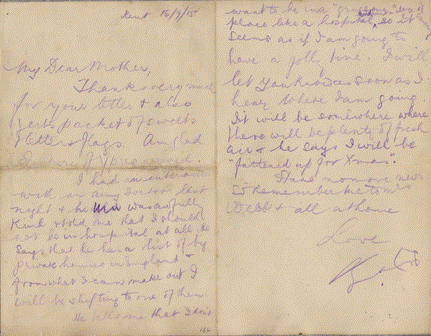 Kent 16/9/15
My Dear Mother,
Thanks very much
for your letter & also
packet of sweets
& Letter & flags. Am glad
I had an interview
with an army Doctor last
night & he was awfully
kind & told me that I should
not be in hospital at all, he
says that he has a list of big
private homes in England &
from what I can make out I
will be shifting to one of them.
He tells me that I don't
want to be in a "gruesome" sort of
place like a hospital, so it
seems as if I am going to
have a jolly time. I will
let you know as soon as I
hear where I am going.
It will be somewhere where
there will be plenty of fresh
air & he says I will be
"fattened up for Xmas".
I have no more news
so remember me to
& all at home
Love